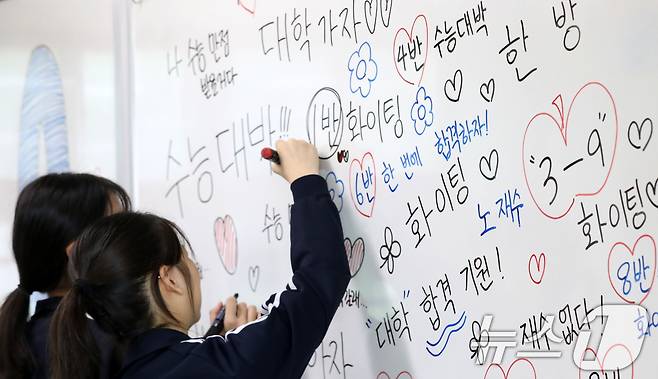 나 수능 만점
받을거다
대학 가자
4반
수능대박
한 방
수능 대박!!!
1반
화이팅
6반
한 번에
합격하자!
"3-9"
화이팅
노 재수
화이팅
수능
합격 기원!
"대학"
8반
재수 없다!
가자
화
뉴스1